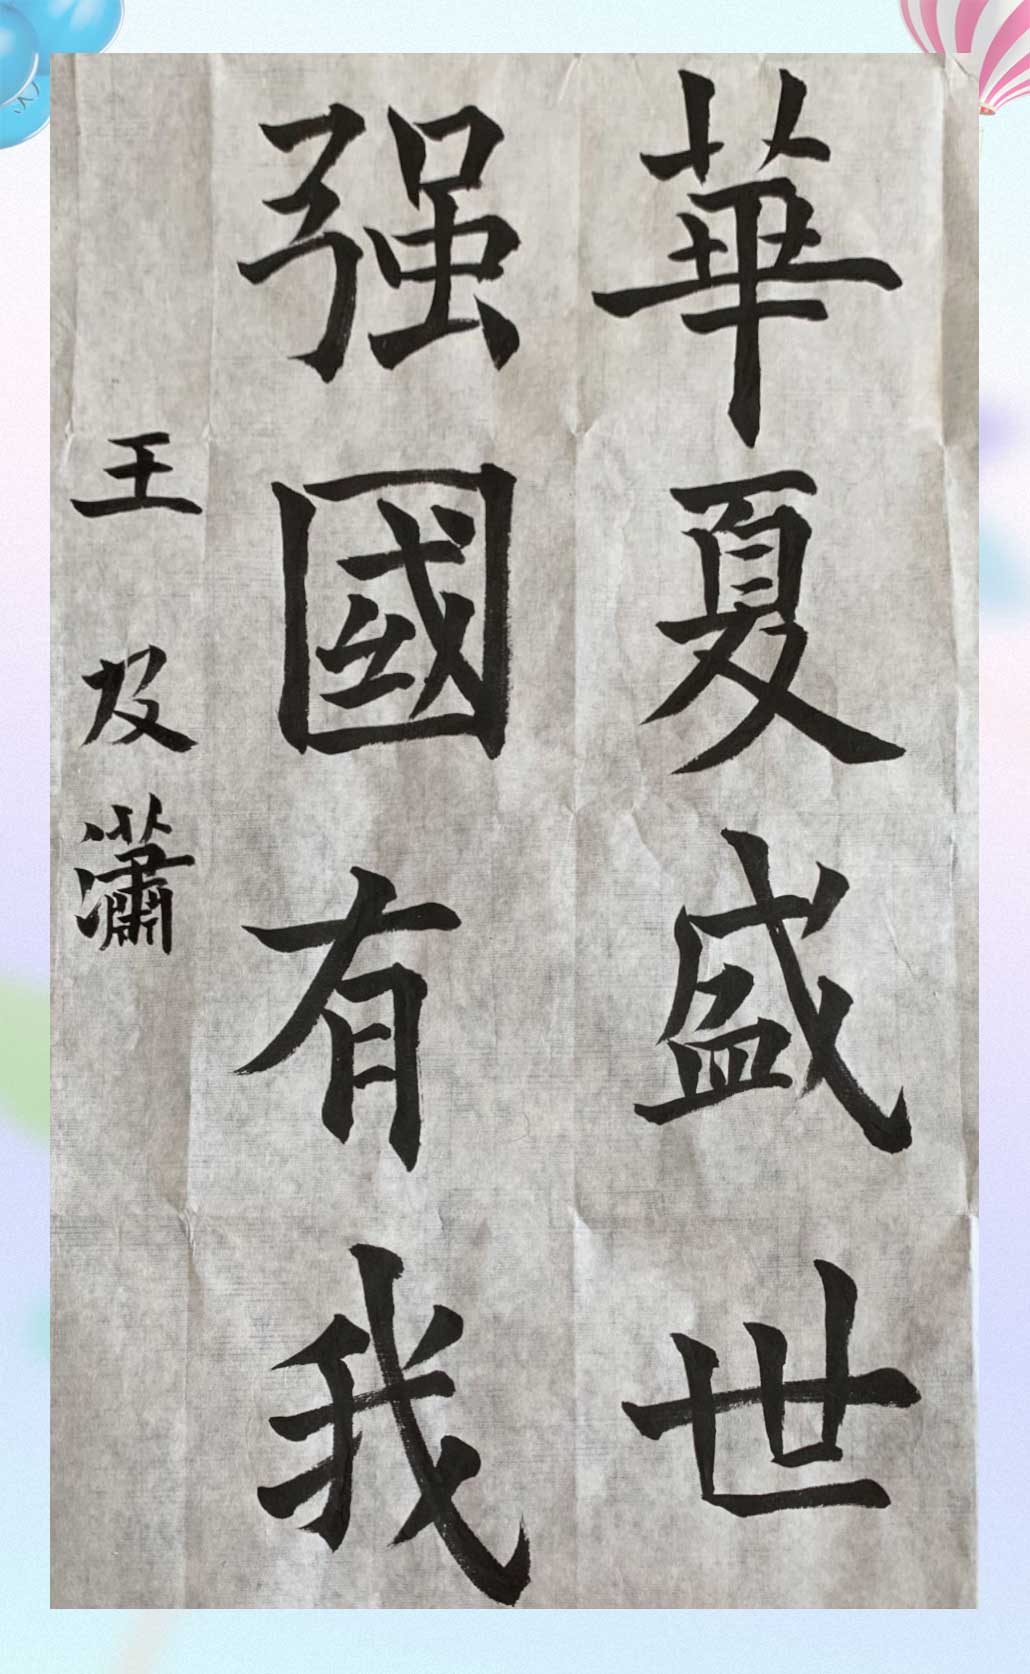 華夏盛世
强國有我
王及瀟